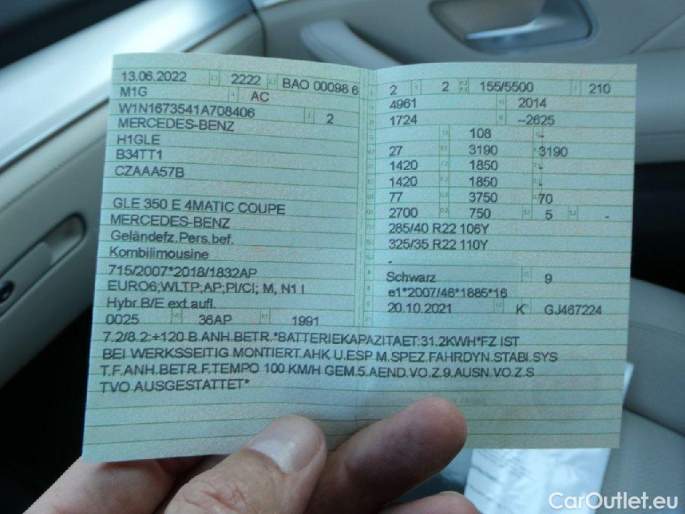 13.06.2022 2222 BAO 00098 6
M1G AC
W1N1673541A708406 2
MERCEDES-BENZ
H1GLE
B34TT1
CZAAA57B
GLE 350 E 4MATIC COUPE
MERCEDES-BENZ
Geländefz.Pers.bef.
Kombilimousine
715/2007*2018/1832AP
EURO6;WLTP;AP;PI/CI; M, N1 I
Hybr.B/E ext.aufl.
0025 36AP 1991
2 2 155/5500 210
4961 2014
1724 –2625
108 -
27 3190 3190
1420 1850 -
1420 1850 -
77 3750 70
2700 750 5 -
285/40 R22 106Y
325/35 R22 110Y
-
Schwarz 9
e1*2007/46*1885*16
20.10.2021 K GJ467224
7.2/8.2:+120 B.ANH.BETR.*BATTERIEKAPAZITAET:31,2KWH*FZ IST
BEI WERKSSEITIG MONTIERT.AHK U.ESP M.SPEZ.FAHRDYN.STABI.SYS
T.F.ANH.BETR.F.TEMPO 100 KM/H GEM.5.AEND.VO.Z.9.AUSN.VO.Z.S
TVO AUSGESTATTET*
CarOutlet.eu